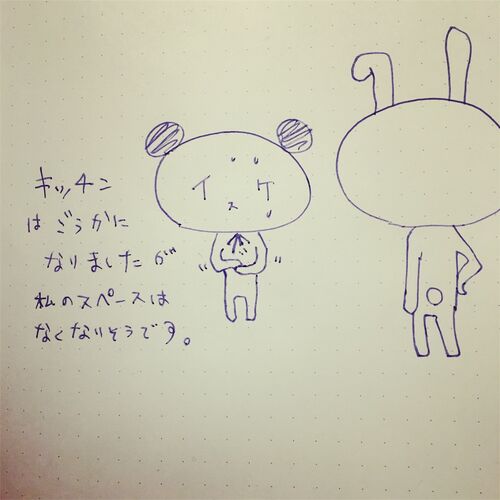 キッチン
は ごうかに
なりましたが
私のスペースは
なくなりそうです。
イ ケ